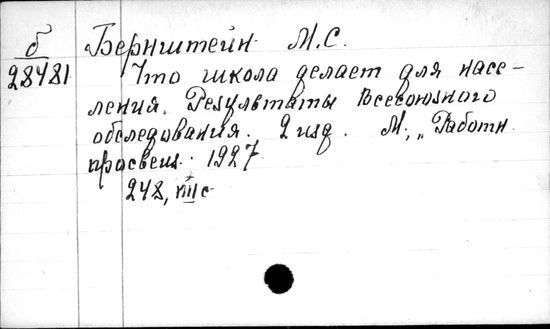 б
28481
Бернштейн М.С.
Что школа делает для насе-
ления. Результаты Всесоюзного
обследования. 2 изд. М., „Работн.
просвещ. 1927
248, III с